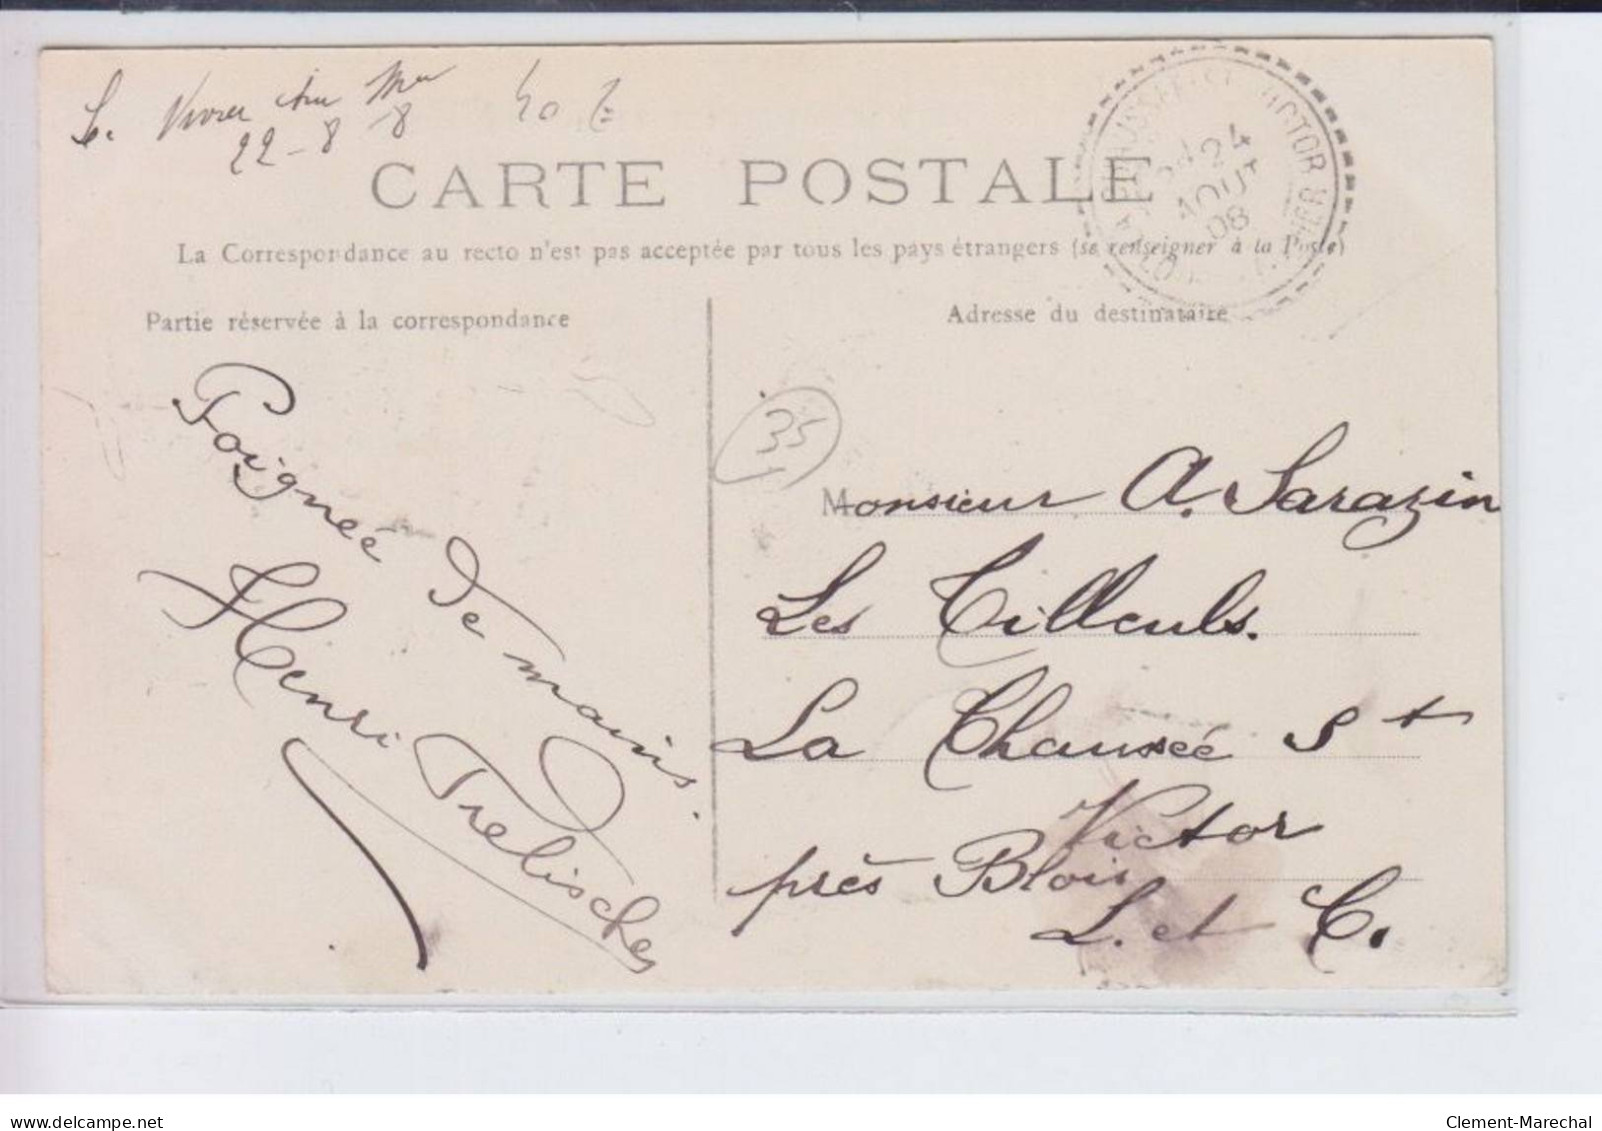 22-8-8
CARTE POSTALE
La Correspondance au recto n'est pas acceptée par tous les pays étrangers (se renseigner à la Poste)
Partie réservée à la correspondance
Adresse du destinataire
24
AOUT
08
35
Poignée de mains.
Henri
Monsieur A. Sarazin
Les Tilleuls.
La Chaussée St
Victor
près Blois
L. et C.
delcampe.net
Clement-Marechal